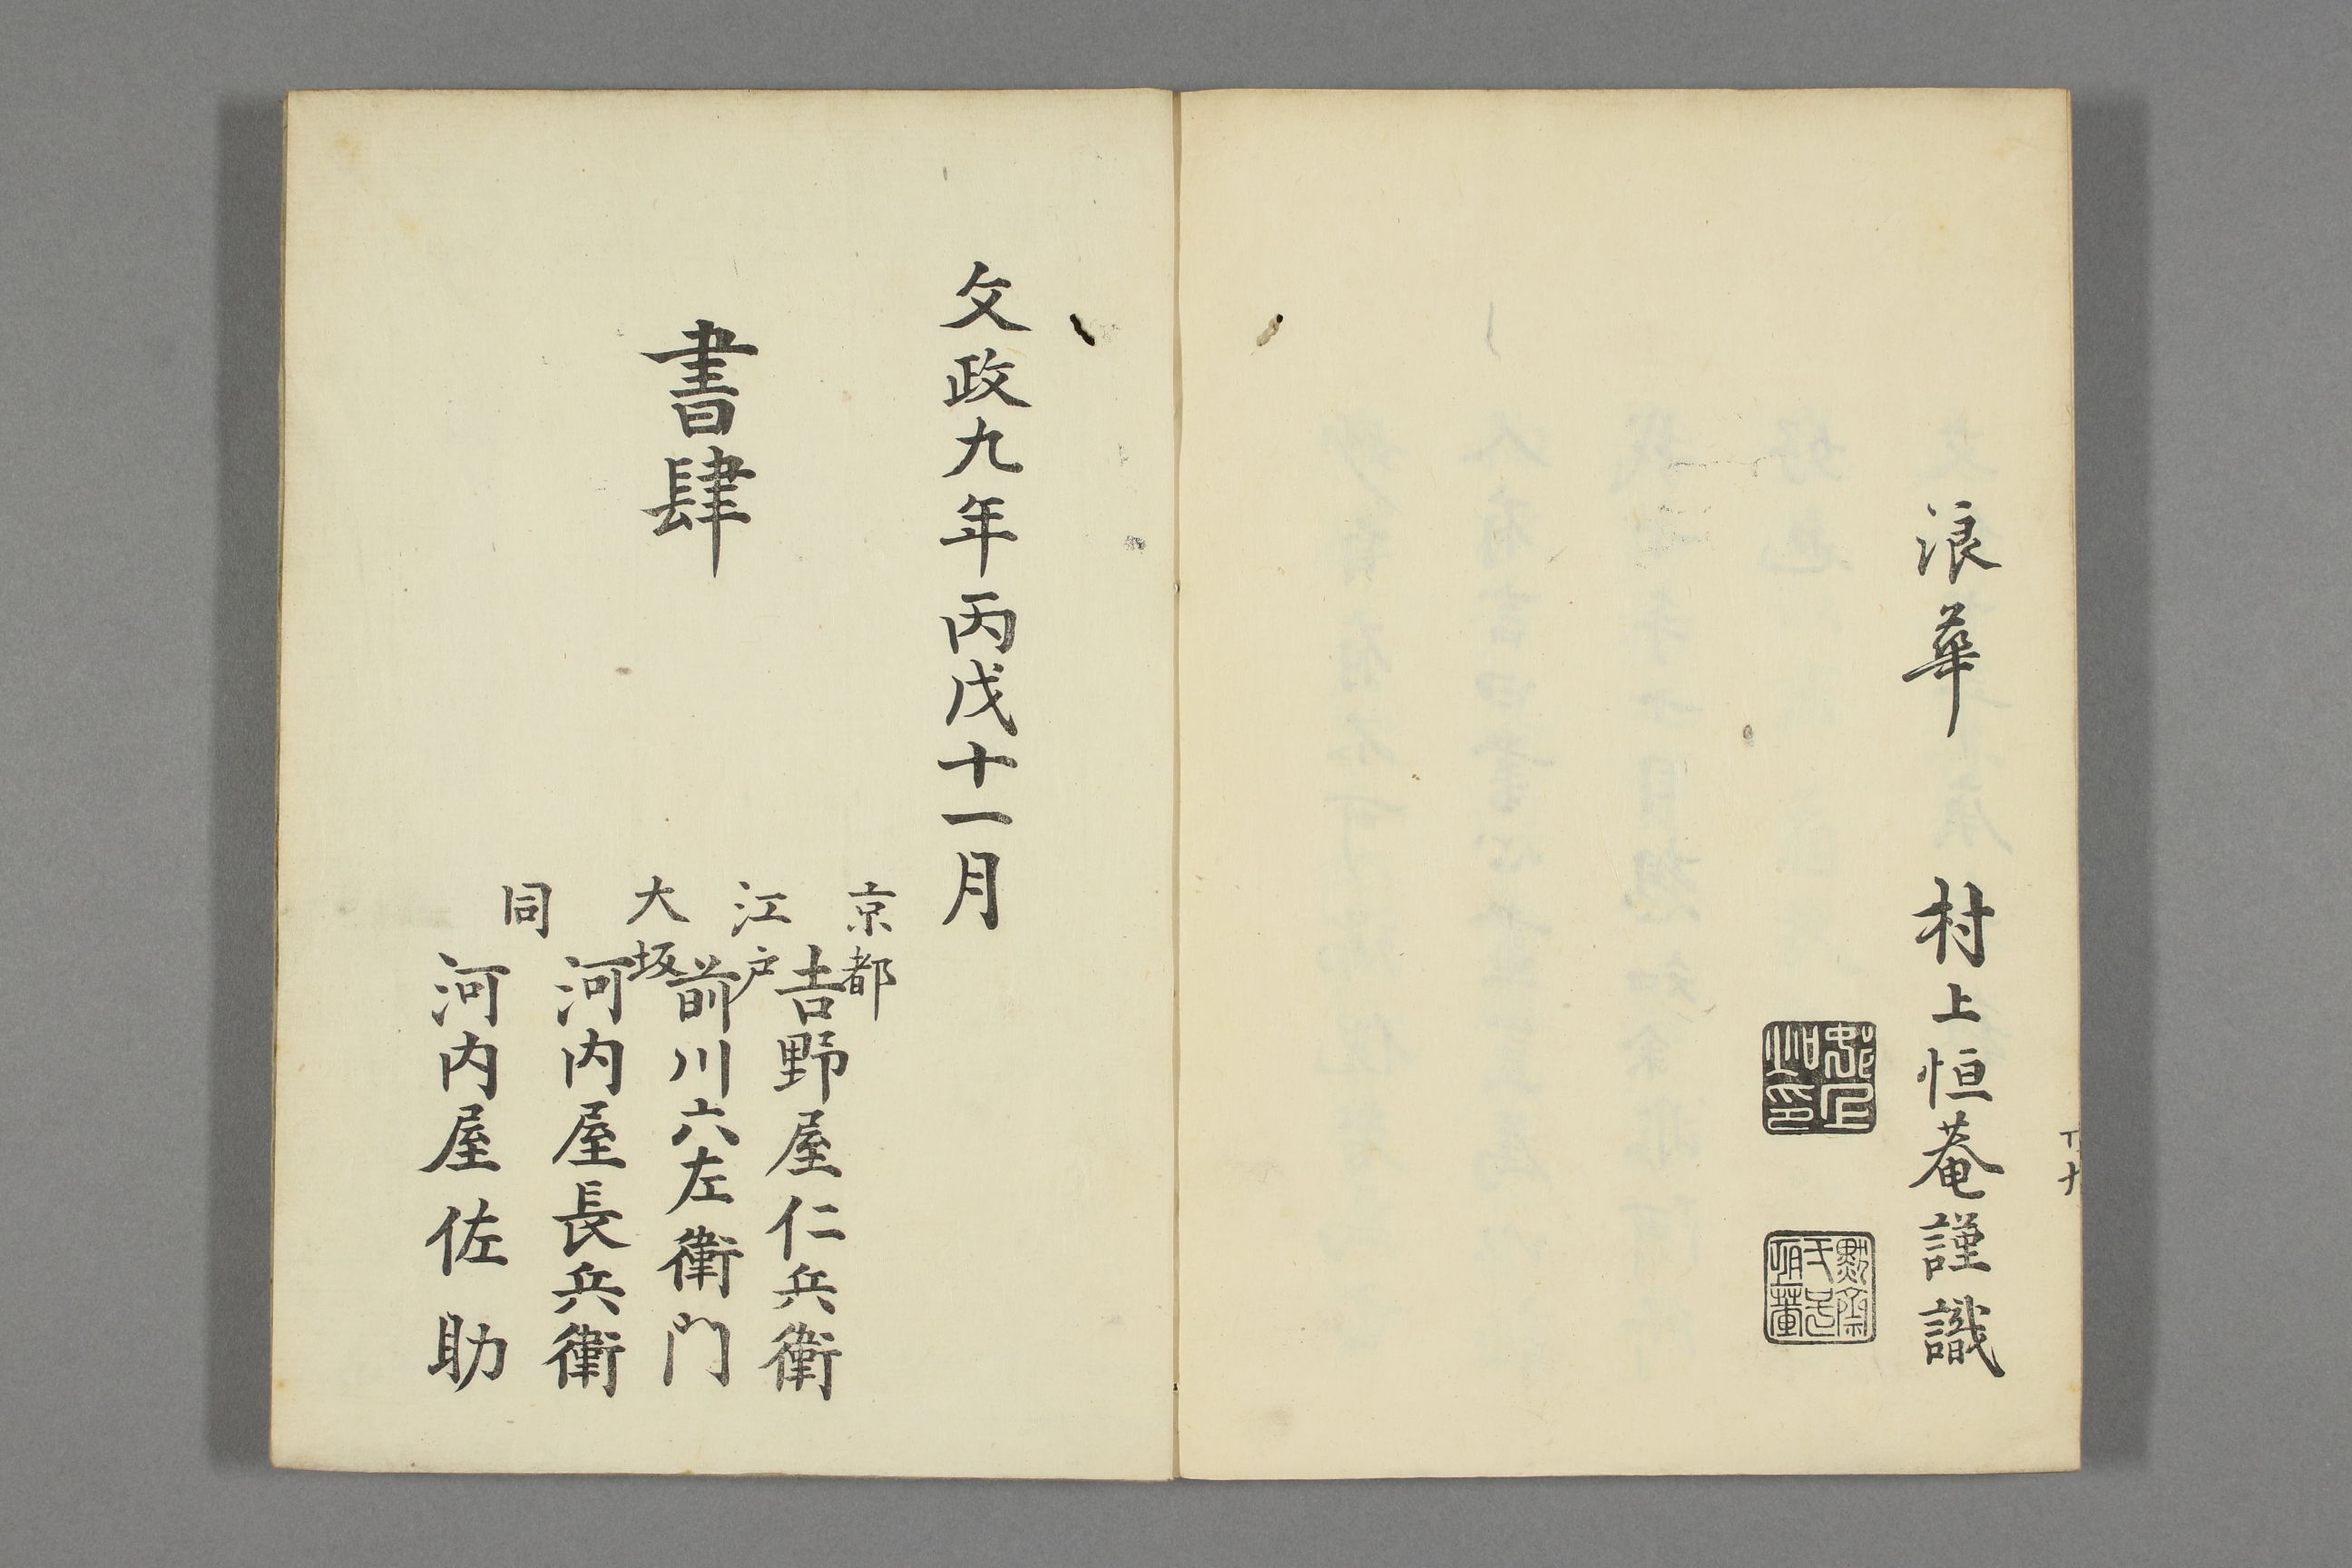 浪華 村上恒菴謹識
文政九年丙戌十一月
書肆
京都 吉野屋仁兵衛
江戸 前川六左衛門
大坂 河内屋長兵衛
同 河内屋佐助